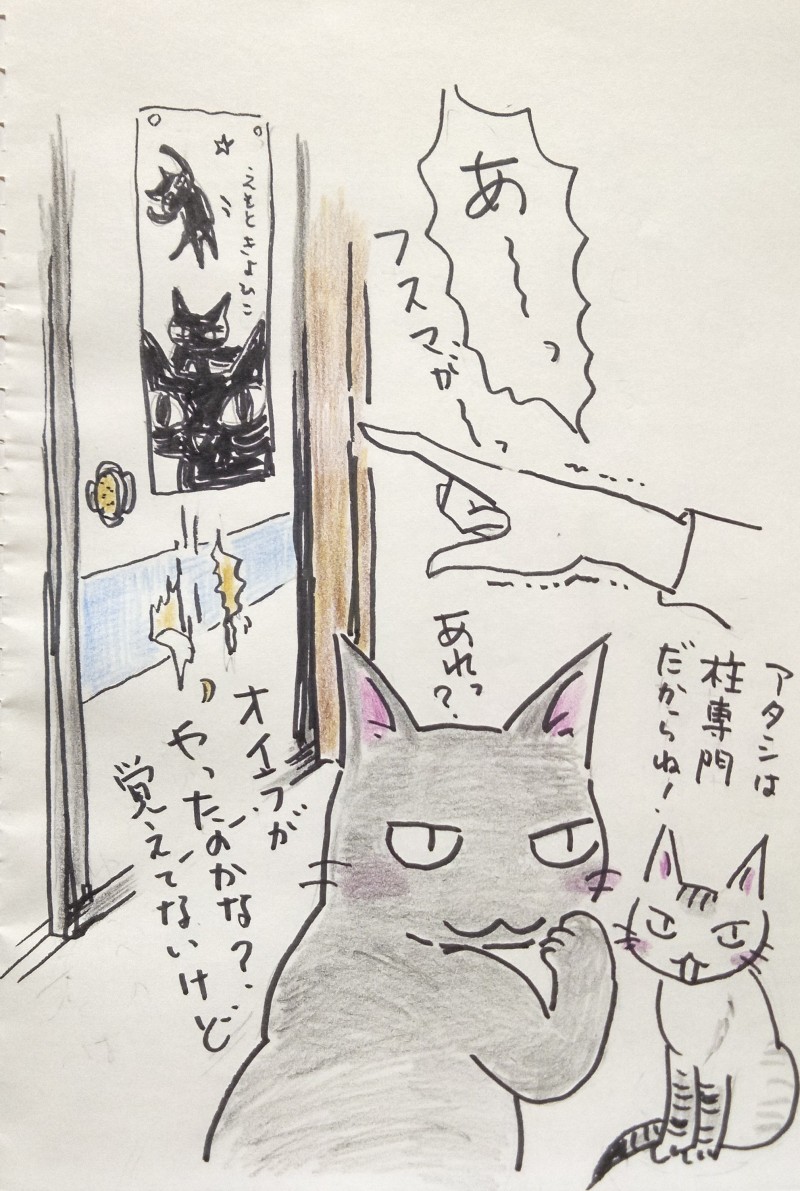 あ〜っ
フスマが〜っ
えもときよひこ
あれっ?
アタシは
柱専門
だからね!
オイラが
やったのかな?
覚えてないけど